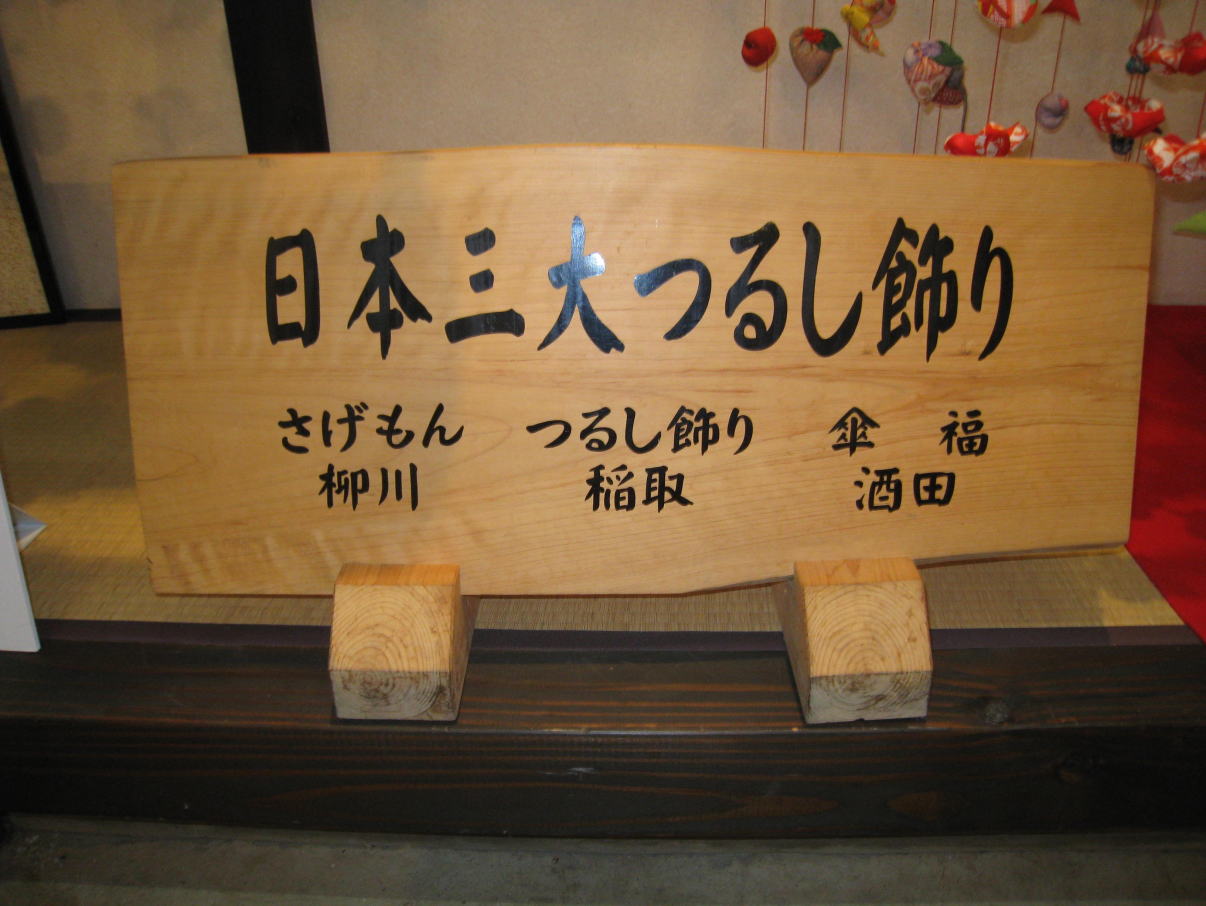 日本三大つるし飾り
さげもん つるし飾り 傘 福
柳川 稲取 酒田